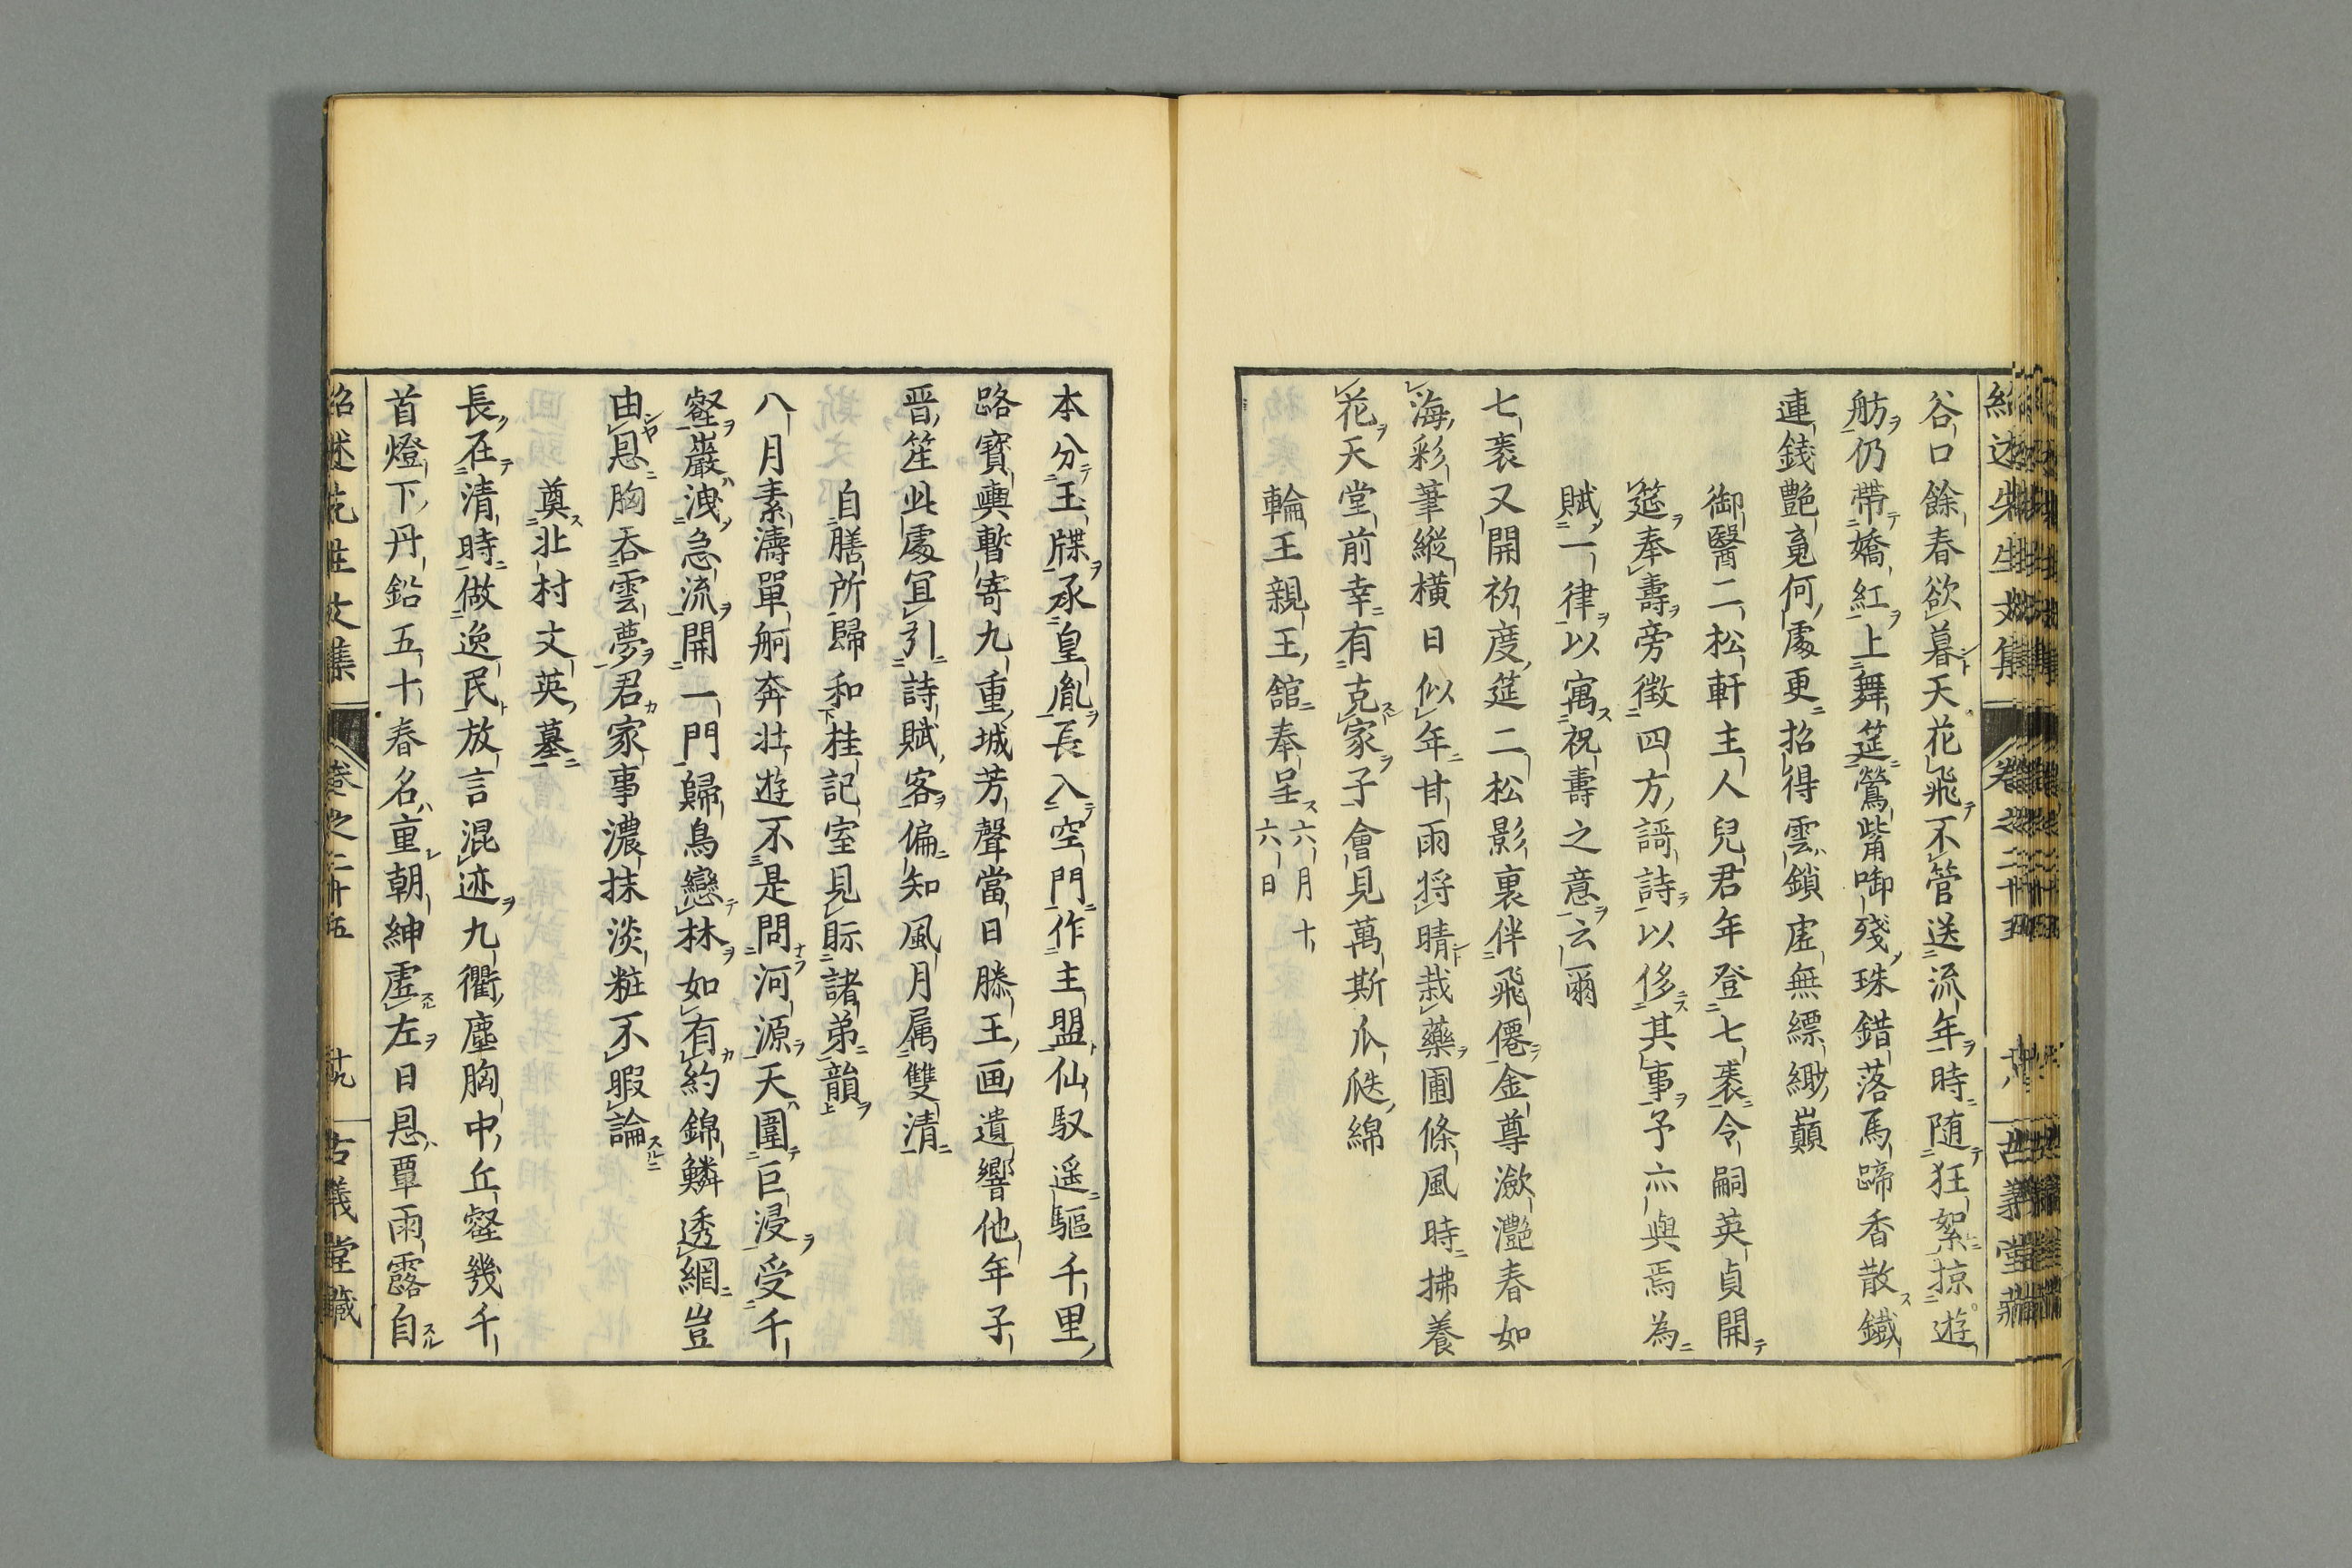 谷口餘春欲暮天花飛不管送流年時随狂絮掠遊
舫仍帶嬌紅上舞筵鶯觜啣殘珠錯落馬蹄香散鐵
連錢艶竟何處更招得雲鎖虛無縹緲巓
御醫二松軒主人兒君年登七袠令嗣英貞開
筵奉壽旁徴四方謌詩以侈其事予亦與焉為
賦一律以寓祝壽之意云爾
七袠又開初度筵二松影裏伴飛僊金尊瀲灔春如
海彩筆縱横日似年甘雨将晴栽藥圃條風時拂養
花天堂前幸有克家子會見萬斯瓜瓞綿
輪王親王舘奉呈六月十
六日
本分玉牒承皇胤長入空門作主盟仙馭遥驅千里
路寳輿暫寄九重城芳聲當日滕王画遺響他年子
晋笙此處冝引詩賦客偏知風月属雙清
自膳所歸和桂記室見眎諸弟韻
八月素濤單舸奔壮遊不是問河源天圍巨浸受千
壑巖洩急流開一門歸鳥戀林如有約錦鱗透網豈
由恩胸吞雲夢君家事濃抹淡粧不暇論
奠北村文英墓
長在清時做逸民放言混迹九衢塵胸中丘壑幾千
首燈下丹鉛五十春名重朝紳虛左日恩覃雨露自
紹述先生文集 卷之二十五 十九 古義堂藏